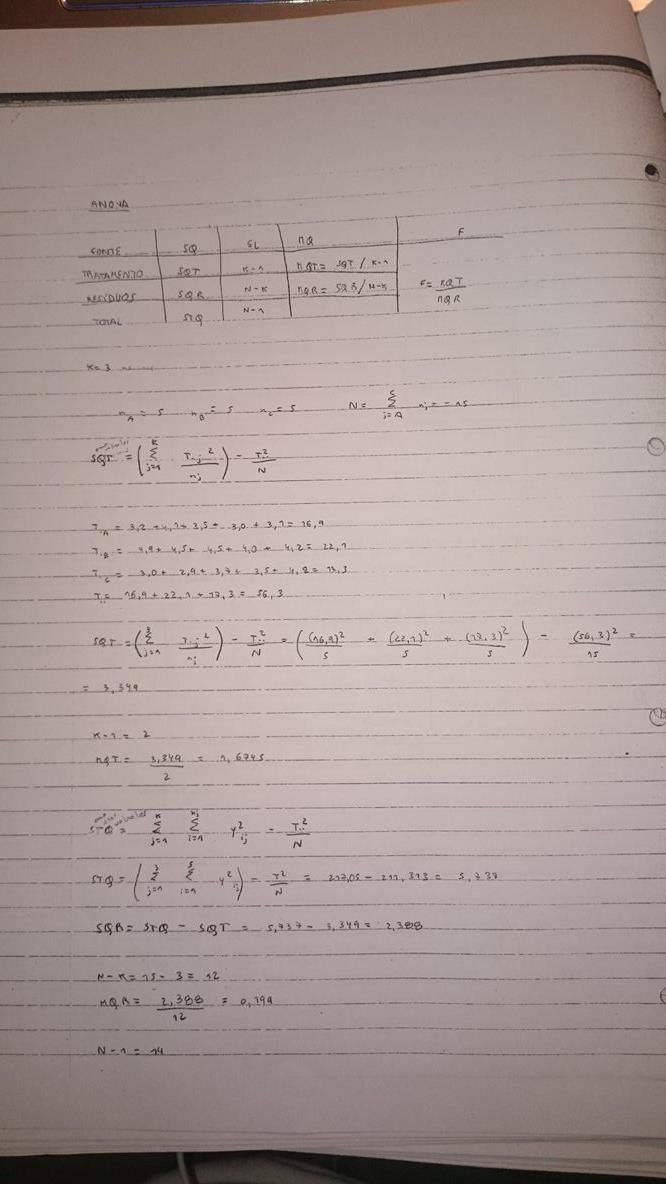 ANOVA
FONTE SQ GL MQ F
TRATAMENTO SQT K-1 MQT = SQT / K-1
RESÍDUOS SQR N-K MQR = SQR / N-K F = MQT / MQR
TOTAL STQ N-1
K = 3
n_A = 5 n_B = 5 n_C = 5 N = Σ_{j=A}^{C} n_j = 15
SQT = (Σ_{j=1}^{K} T.j² / n_j) - T..² / N
T.A = 3,2 + 4,1 + 3,5 + 3,0 + 3,1 = 16,9
T.B = 4,9 + 4,5 + 4,5 + 4,0 + 4,2 = 22,1
T.C = 3,0 + 2,9 + 3,7 + 3,5 + 4,2 = 17,3
T.. = 16,9 + 22,1 + 17,3 = 56,3
SQT = (Σ_{j=1}^{3} T.j² / n_j) - T..² / N = ((16,9)² / 5 + (22,1)² / 5 + (17,3)² / 5) - (56,3)² / 15 =
= 3,349
K-1 = 2
MQT = 3,349 / 2 = 1,6745
STQ = Σ_{j=1}^{K} Σ_{i=1}^{nj} y²_ij - T..² / N
STQ = (Σ_{j=1}^{3} Σ_{i=1}^{5} y²_ij) - T..² / N = 217,05 - 211,313 = 5,737
SQR = STQ - SQT = 5,737 - 3,349 = 2,388
N-K = 15-3 = 12
MQR = 2,388 / 12 = 0,199
N-1 = 14